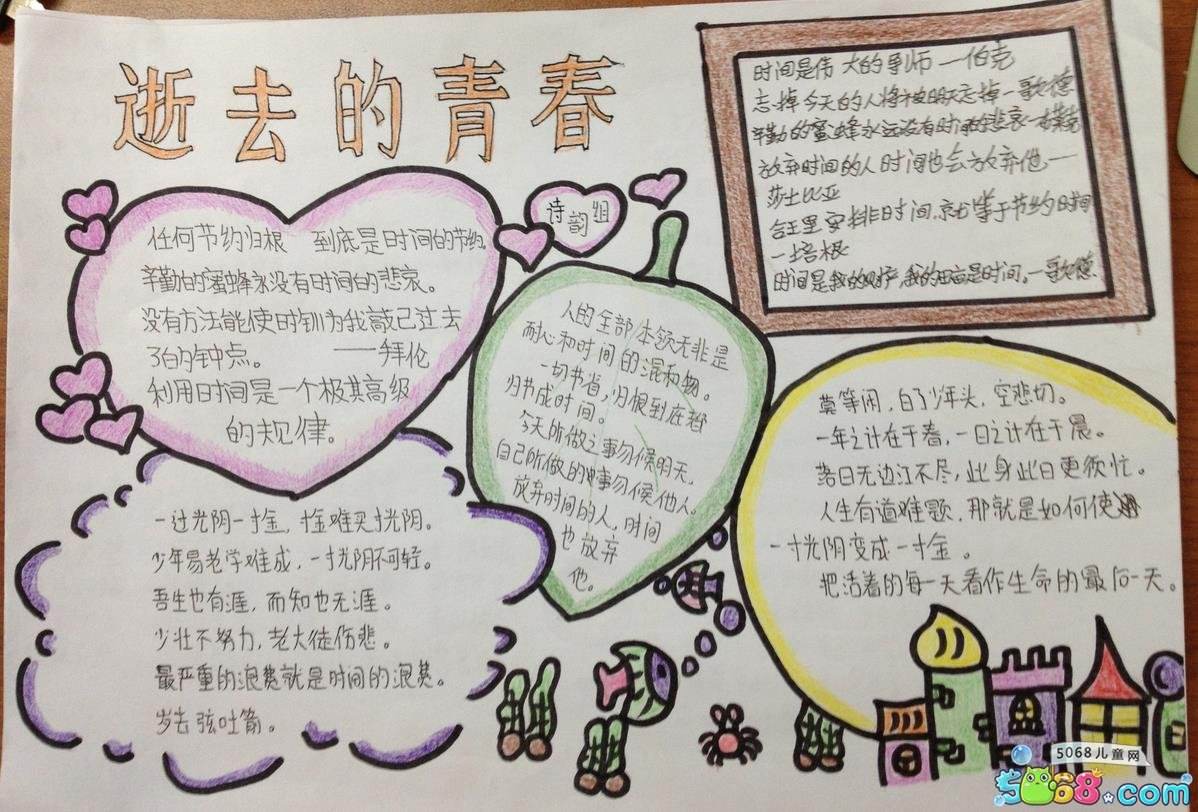 逝去的青春
时间是伟大的导师—伯克
忘掉今天的人将被明天忘掉—歌德
辛勤的蜜蜂永远没有时间的悲哀—
放弃时间的人时间也会放弃他—
莎士比亚
合王里安排时间,就等于节约时间
—培根
时间是我的财产,我的田亩是时间。—歌德
诗韵组
任何节约归根 到底是时间的节约
辛勤的蜜蜂永没有时间的悲哀。
没有方法能使时钟为我敲已过去
了的钟点。 ——拜伦
利用时间是一个极其高级
的规律。
人的全部本领无非是
耐心和时间的混和物。
一切节省,归根到底都
归节成时间。
今天所做之事勿候明天,
自己所做的事勿候他人。
放弃时间的人,时间
也放弃
他。
莫等闲,白了少年头,空悲切。
一年之计在于春,一日之计在于晨。
落日无边江不尽,此身此日更须忙。
人生有道难题,那就是如何使
一寸光阴变成一寸金。
把活着的每一天看作生命的最后一天。
一过光阴一寸金,寸金难买寸光阴。
少年易老学难成,一寸光阴不可轻。
吾生也有涯,而知也无涯。
少壮不努力,老大徒伤悲。
最严重的浪费就是时间的浪费。
岁去弦吐箭。
5068儿童网
5068.com